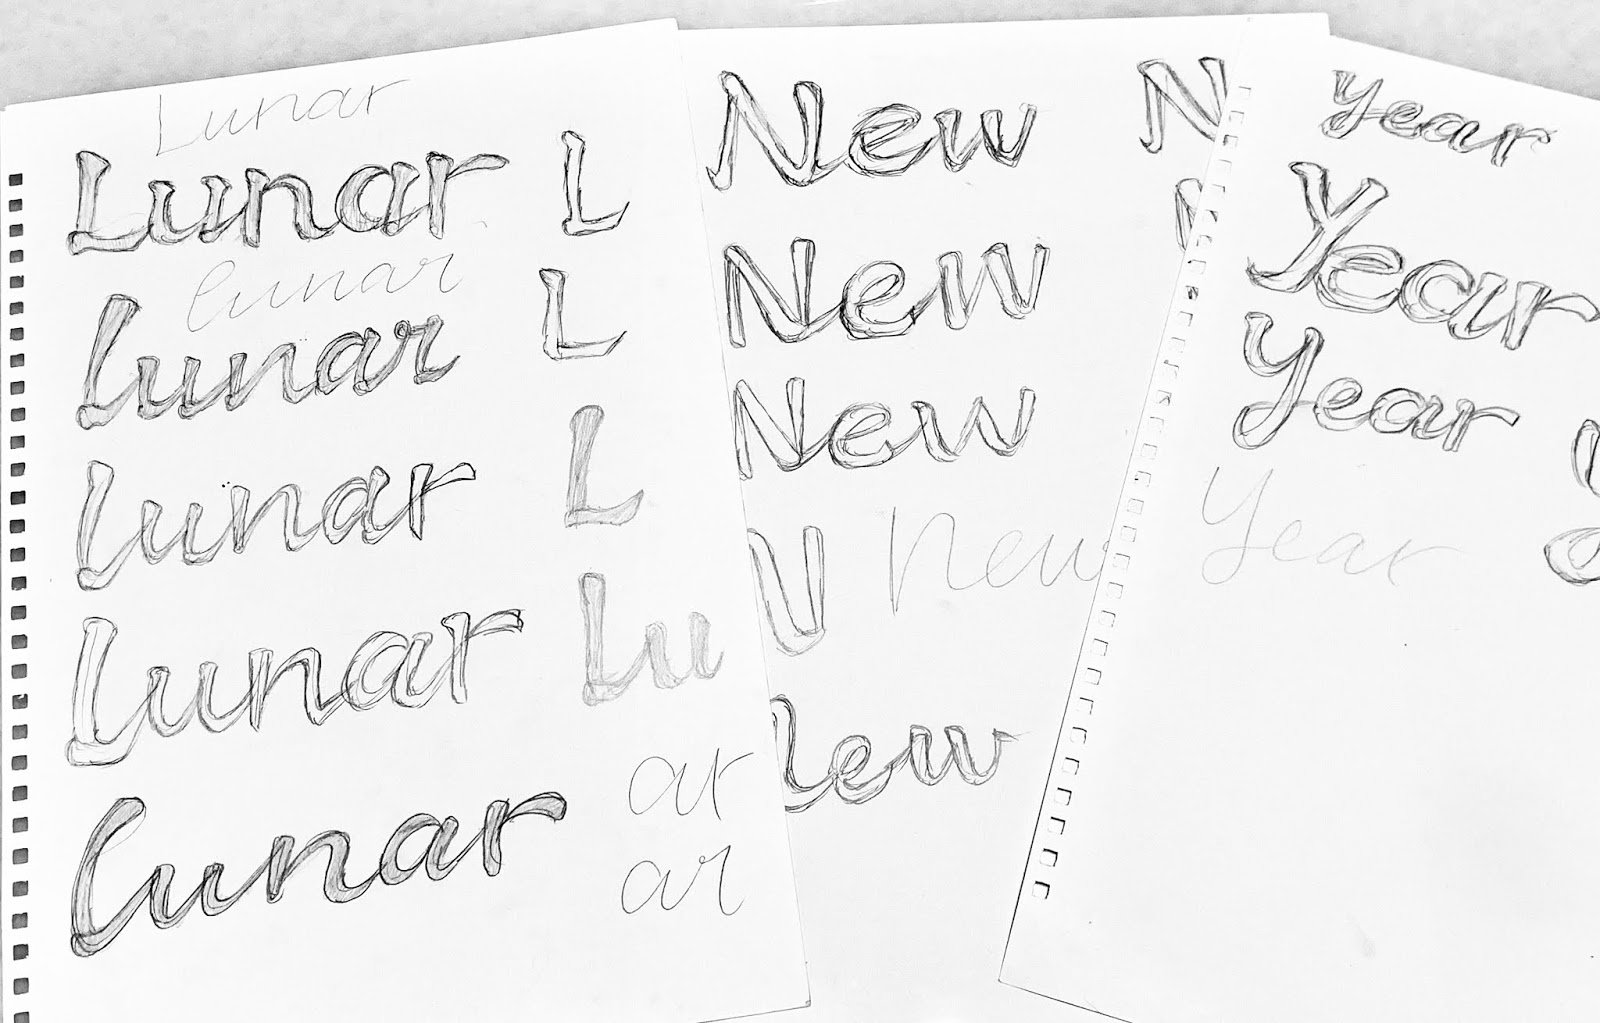 Lunar
Lunar
L
lunar
Lunar
L
Lunar
L
Lunar
Lu
ar
Lunar
ar
New
N
New
New
N
New
New
year
Year
Year
Year